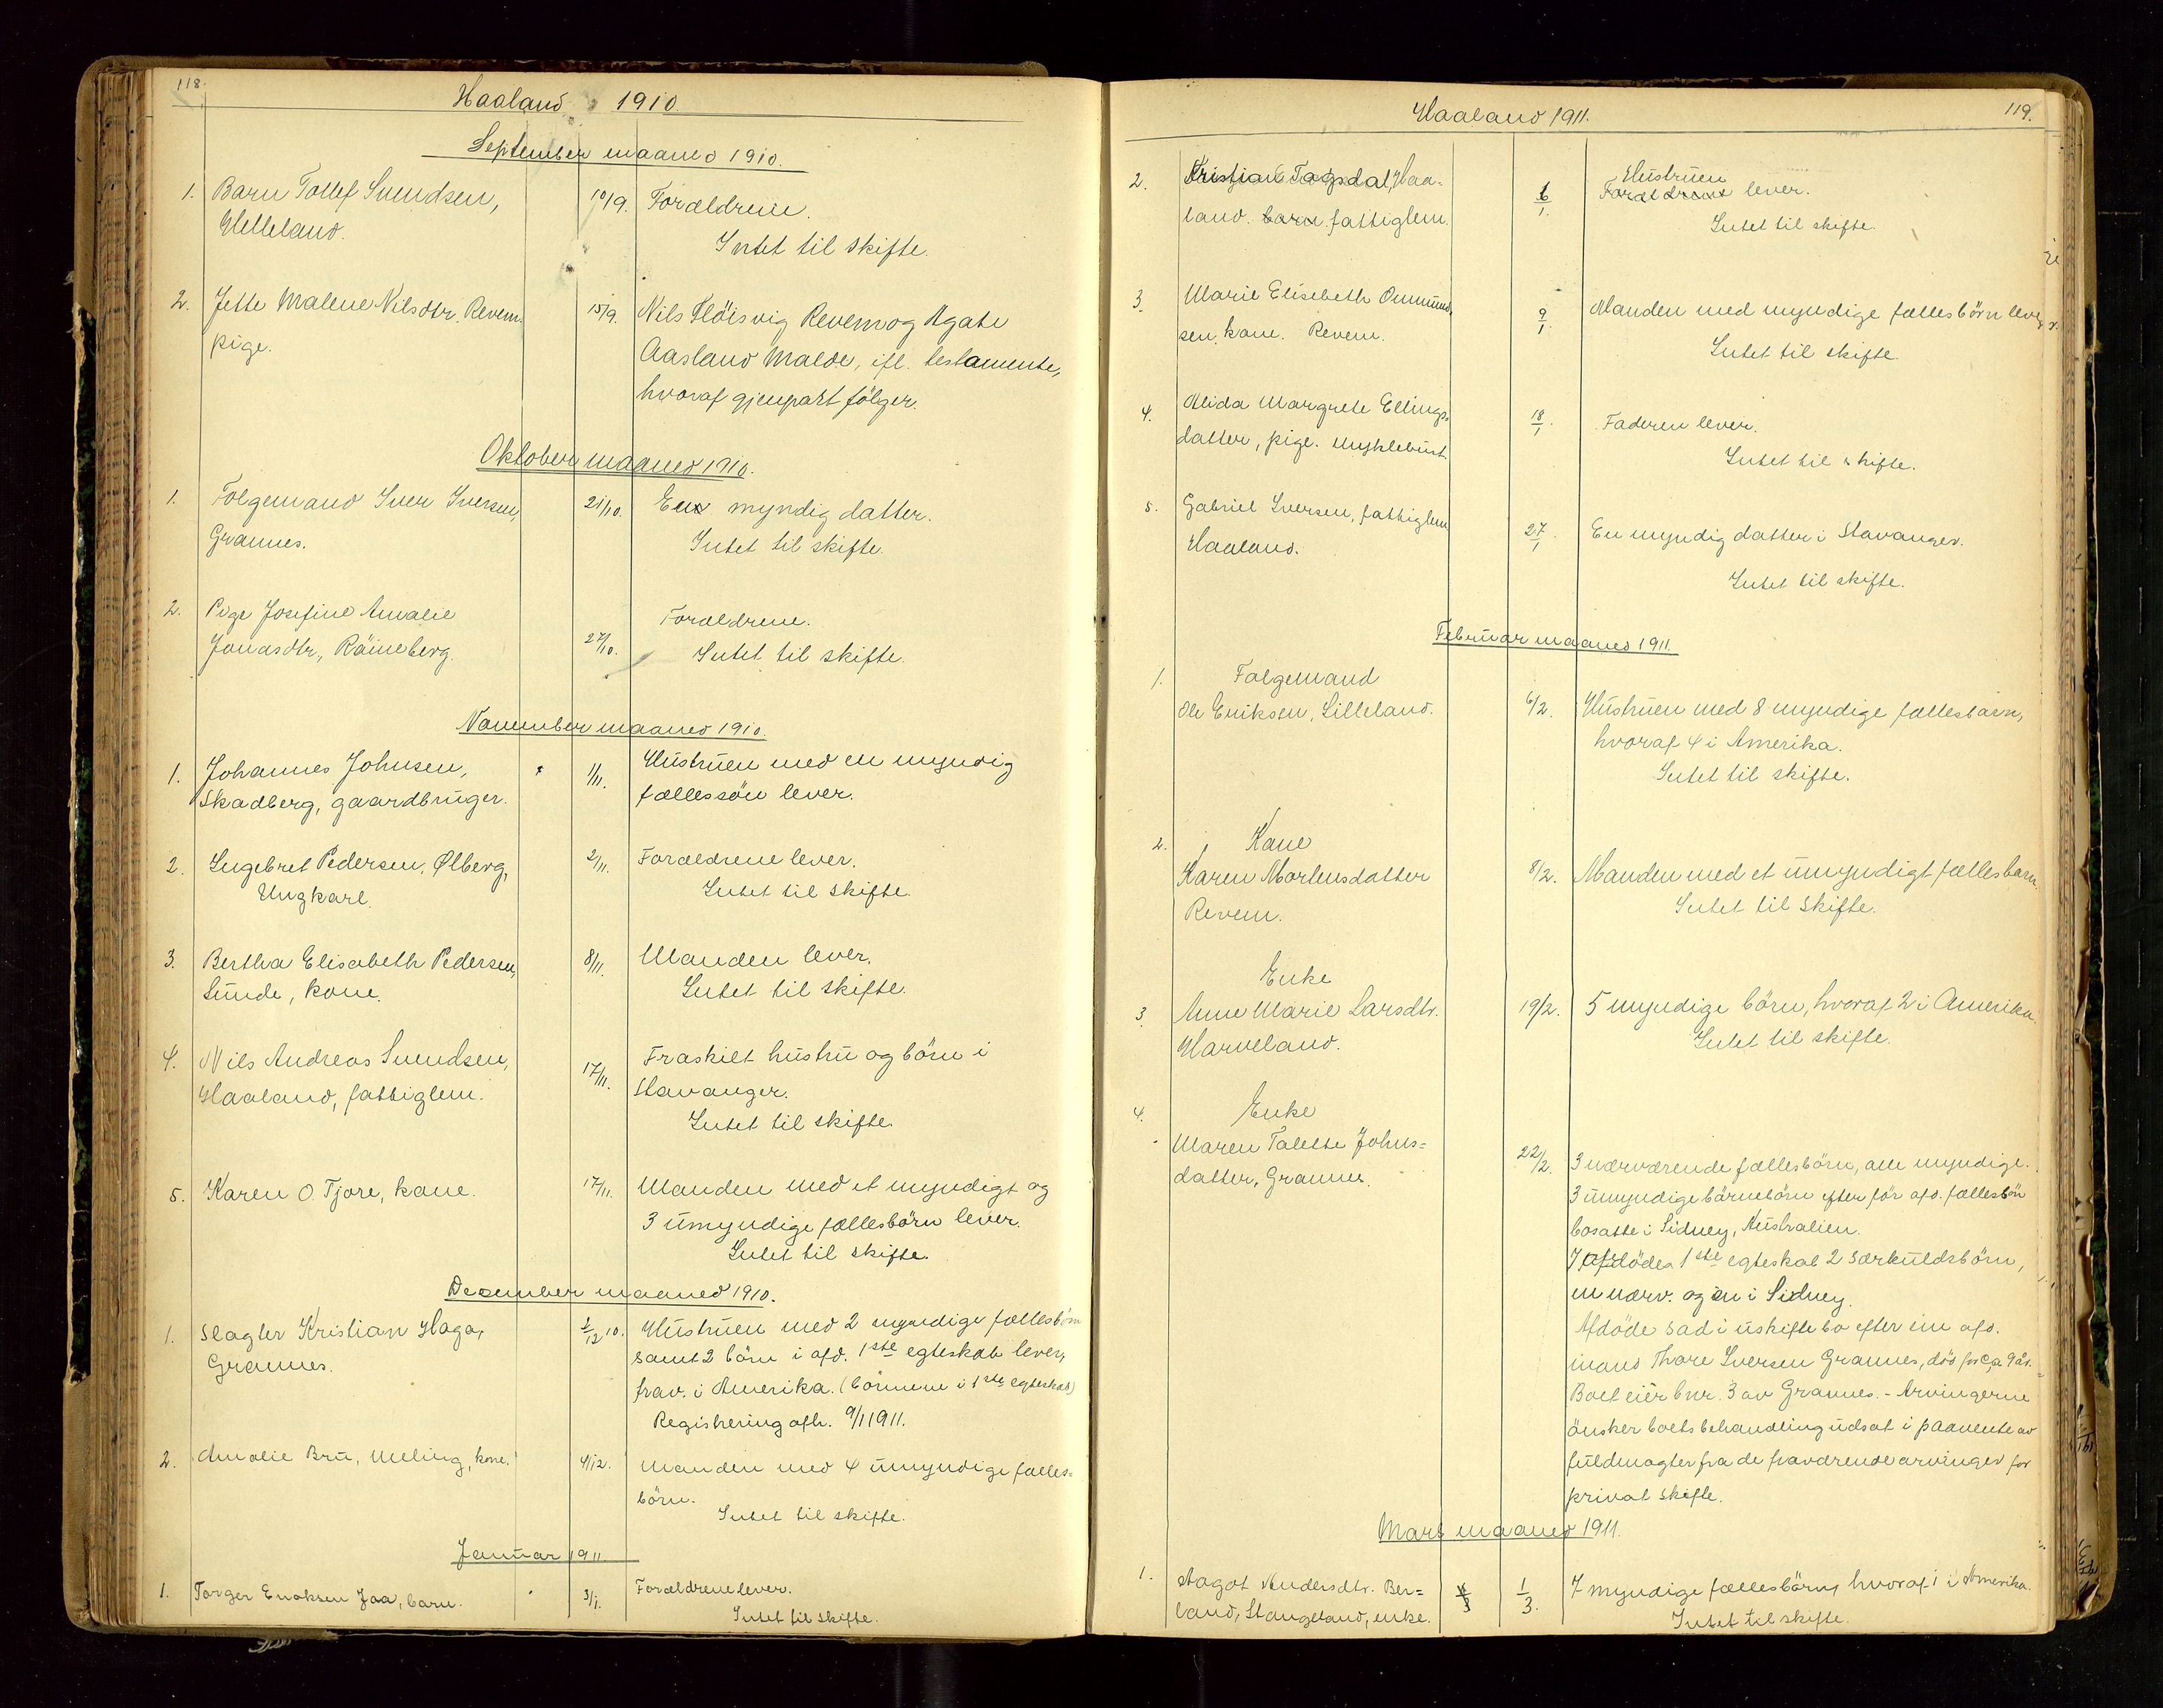 118.
Haaland 1910.
September maaned 1910.
1. Barn Tollef Svendsen, 10/9. Forældrene.
Helleland.
Intet til skifte.
2. Jette Malene Nilsdtr. Revem 15/9. Nils Flöisvig Revem og Agate
pige.
Aasland Malde, ifl. testamente,
hvoraf gjenpart fölger.
Oktober maaned 1910.
1. Folgemand Iver Iversen, 21/10. En myndig datter.
Grannes. Intet til skifte.
2. Pige Josefine Amalie Forældrene.
Jonasdtr., Räineberg. 27/10. Intet til skifte.
November maaned 1910.
1. Johannes Johnsen, 1/11. Hustruen med en myndig
Skadberg, gaardbruger. fællessön lever.
2. Ingebret Pedersen, Ølberg, 2/11. Forældrene lever.
Ungkarl. Intet til skifte.
3. Bertha Elisabeth Pedersen, 8/11. Manden lever.
Sunde, kone. Intet til skifte.
4. Nils Andreas Svendsen, 17/11. Fraskilt hustru og börn i
Haaland, fattiglem. Stavanger.
Intet til skifte.
5. Karen O. Tjore, kone. 17/11. Manden med et myndigt og
3 umyndige fællesbörn lever.
Intet til skifte.
Desember maaned 1910.
1. Slagter Kristian Haga, 1/12 10. Hustruen med 2 myndige fællesbörn
Grannes. samt 2 börn i afd. 1ste egteskab lever,
frav. i Amerika. (börnene i 1ste egteskab)
Registrering afh. 9/1 1911.
2. Amalie Bru, Meling, kone. 4/12. Manden med 4 umyndige fælles=
börn.
Intet til skifte.
Januar 1911.
1. Torger Enoksen Jaa, barn. 3/1. Forældrene lever.
Intet til skifte.
119.
Haaland 1911.
2. Kristian Tagsdal, Haa= 6/1. Hustruen
Forældrene lever.
land. barn. fattiglem. Intet til skifte.
3. Marie Elisebeth Ommund, 9/1. Manden med myndige fællesbörn lever.
sen, kone. Revem. Intet til skifte.
4. Alida Margrete Ellings, 18/1. Faderen lever.
datter, pige. Myklebust. Intet til skifte.
5. Gabriel Iversen, fattiglem
Haaland. 27/1. En myndig datter i Stavanger.
Intet til skifte.
Februar maaned 1911.
1. Folgemand
Ole Eriksen, Lilleland. 6/2. Hustruen med 8 myndige fællesbarn,
hvoraf 4 i Amerika.
Intet til skifte.
2. Kone
Karen Mortensdatter 8/2. Manden med et umyndigt fællesbarn.
Revem. Intet til skifte.
Enke
3. Anne Marie Larsdtr. 19/2. 5 myndige börn, hvoraf 2 i Amerika.
Harveland. Intet til skifte.
4. Enke
Maren Talette Johns= 22/2. 3 nærværende fællesbörn, alle myndige.
datter, Grannes. 3 umyndige börnebörn efter för afd. fællesbön
bosatte i Sidney, Australien.
I afdödes 1ste egteskab 2 særkuldsbörn,
en nærv. og en i Sidney.
Afdöde sad i uskifte bo efter sin afd.
mand Thore Iversen Grannes, död for ca 9 år.
Boet eier bnr. 3 av Grannes. - Arvingerne
önsker boets behandling udsat i paavente av
fuldmagter fra de fraværende arvinger for
privat skifte.
Mars maaned 1911.
1. Aagot Andersdtr. Ber= 1/3. 7 myndige fællesbörn, hvoraf 1 i Amerika.
land, Stangeland, enke. Intet til skifte.